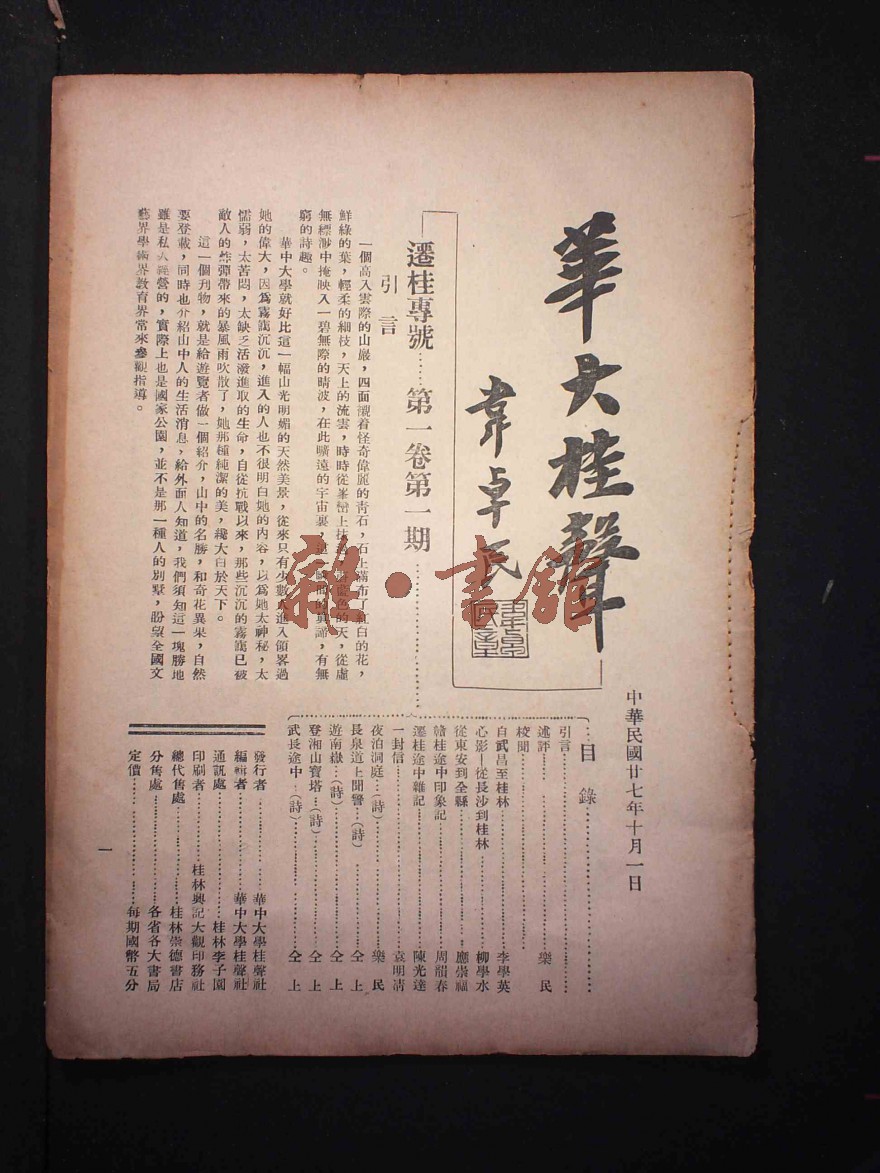 華大桂聲
韋卓民
中華民國廿七年十月一日
遷桂專號……第一卷第一期
引言
一個高入雲際的山巖，四面襯着怪奇偉麗的青石，石上滿布了紅白的花，
鮮綠的葉，輕柔的細枝，天上的流雲，時時從峯巒上抹過，色的天，從虛
無縹渺中掩映入一碧無際的晴波，在此曠遠的宇宙裏，眞諦，有無
窮的詩趣。
華中大學就好比這一幅山光明媚的天然美景，從來只有少數人進入領畧過
她的偉大，因爲霧靄沉沉，進入的人也不很明白她的內容，以爲她太神秘，太
懦弱，太苦悶，太缺乏活潑進取的生命，自從抗戰以來，那些沉沉的霧靄已被
敵人的炸彈帶來的暴風雨吹散了，她那種純潔的美，纔大白於天下。
這一個刊物，就是給遊覽者做一個紹介，山中的名勝，和奇花異果，自然
要登載，同時也介紹山中人的生活消息，給外面人知道，我們須知這一塊勝地
雖是私人經營的，實際上也是國家公園，並不是那一種人的別墅，盼望全國文
藝界學術界教育界常來參觀指導。
目錄
引言
述評……樂民
校聞
自武昌至桂林……李學英
心影—從長沙到桂林……柳學水
從東安到全縣……應崇福
贛桂途中印象記……周韻春
遷桂途中雜記……陳光達
一封信……袁明清
夜泊洞庭…(詩)……樂民
長泉道上聞警…(詩)……仝上
遊南嶽…(詩)……仝上
登湘山寶塔…(詩)……仝上
武長途中…(詩)……仝上
發行者……華中大學桂聲社
編輯者……華中大學桂聲社
通訊處……桂林李子園
印刷者……桂林興記大觀印務社
總代售處……桂林崇德書店
分售處……各省各大書局
定價……每期國幣五分
一
雜·書館